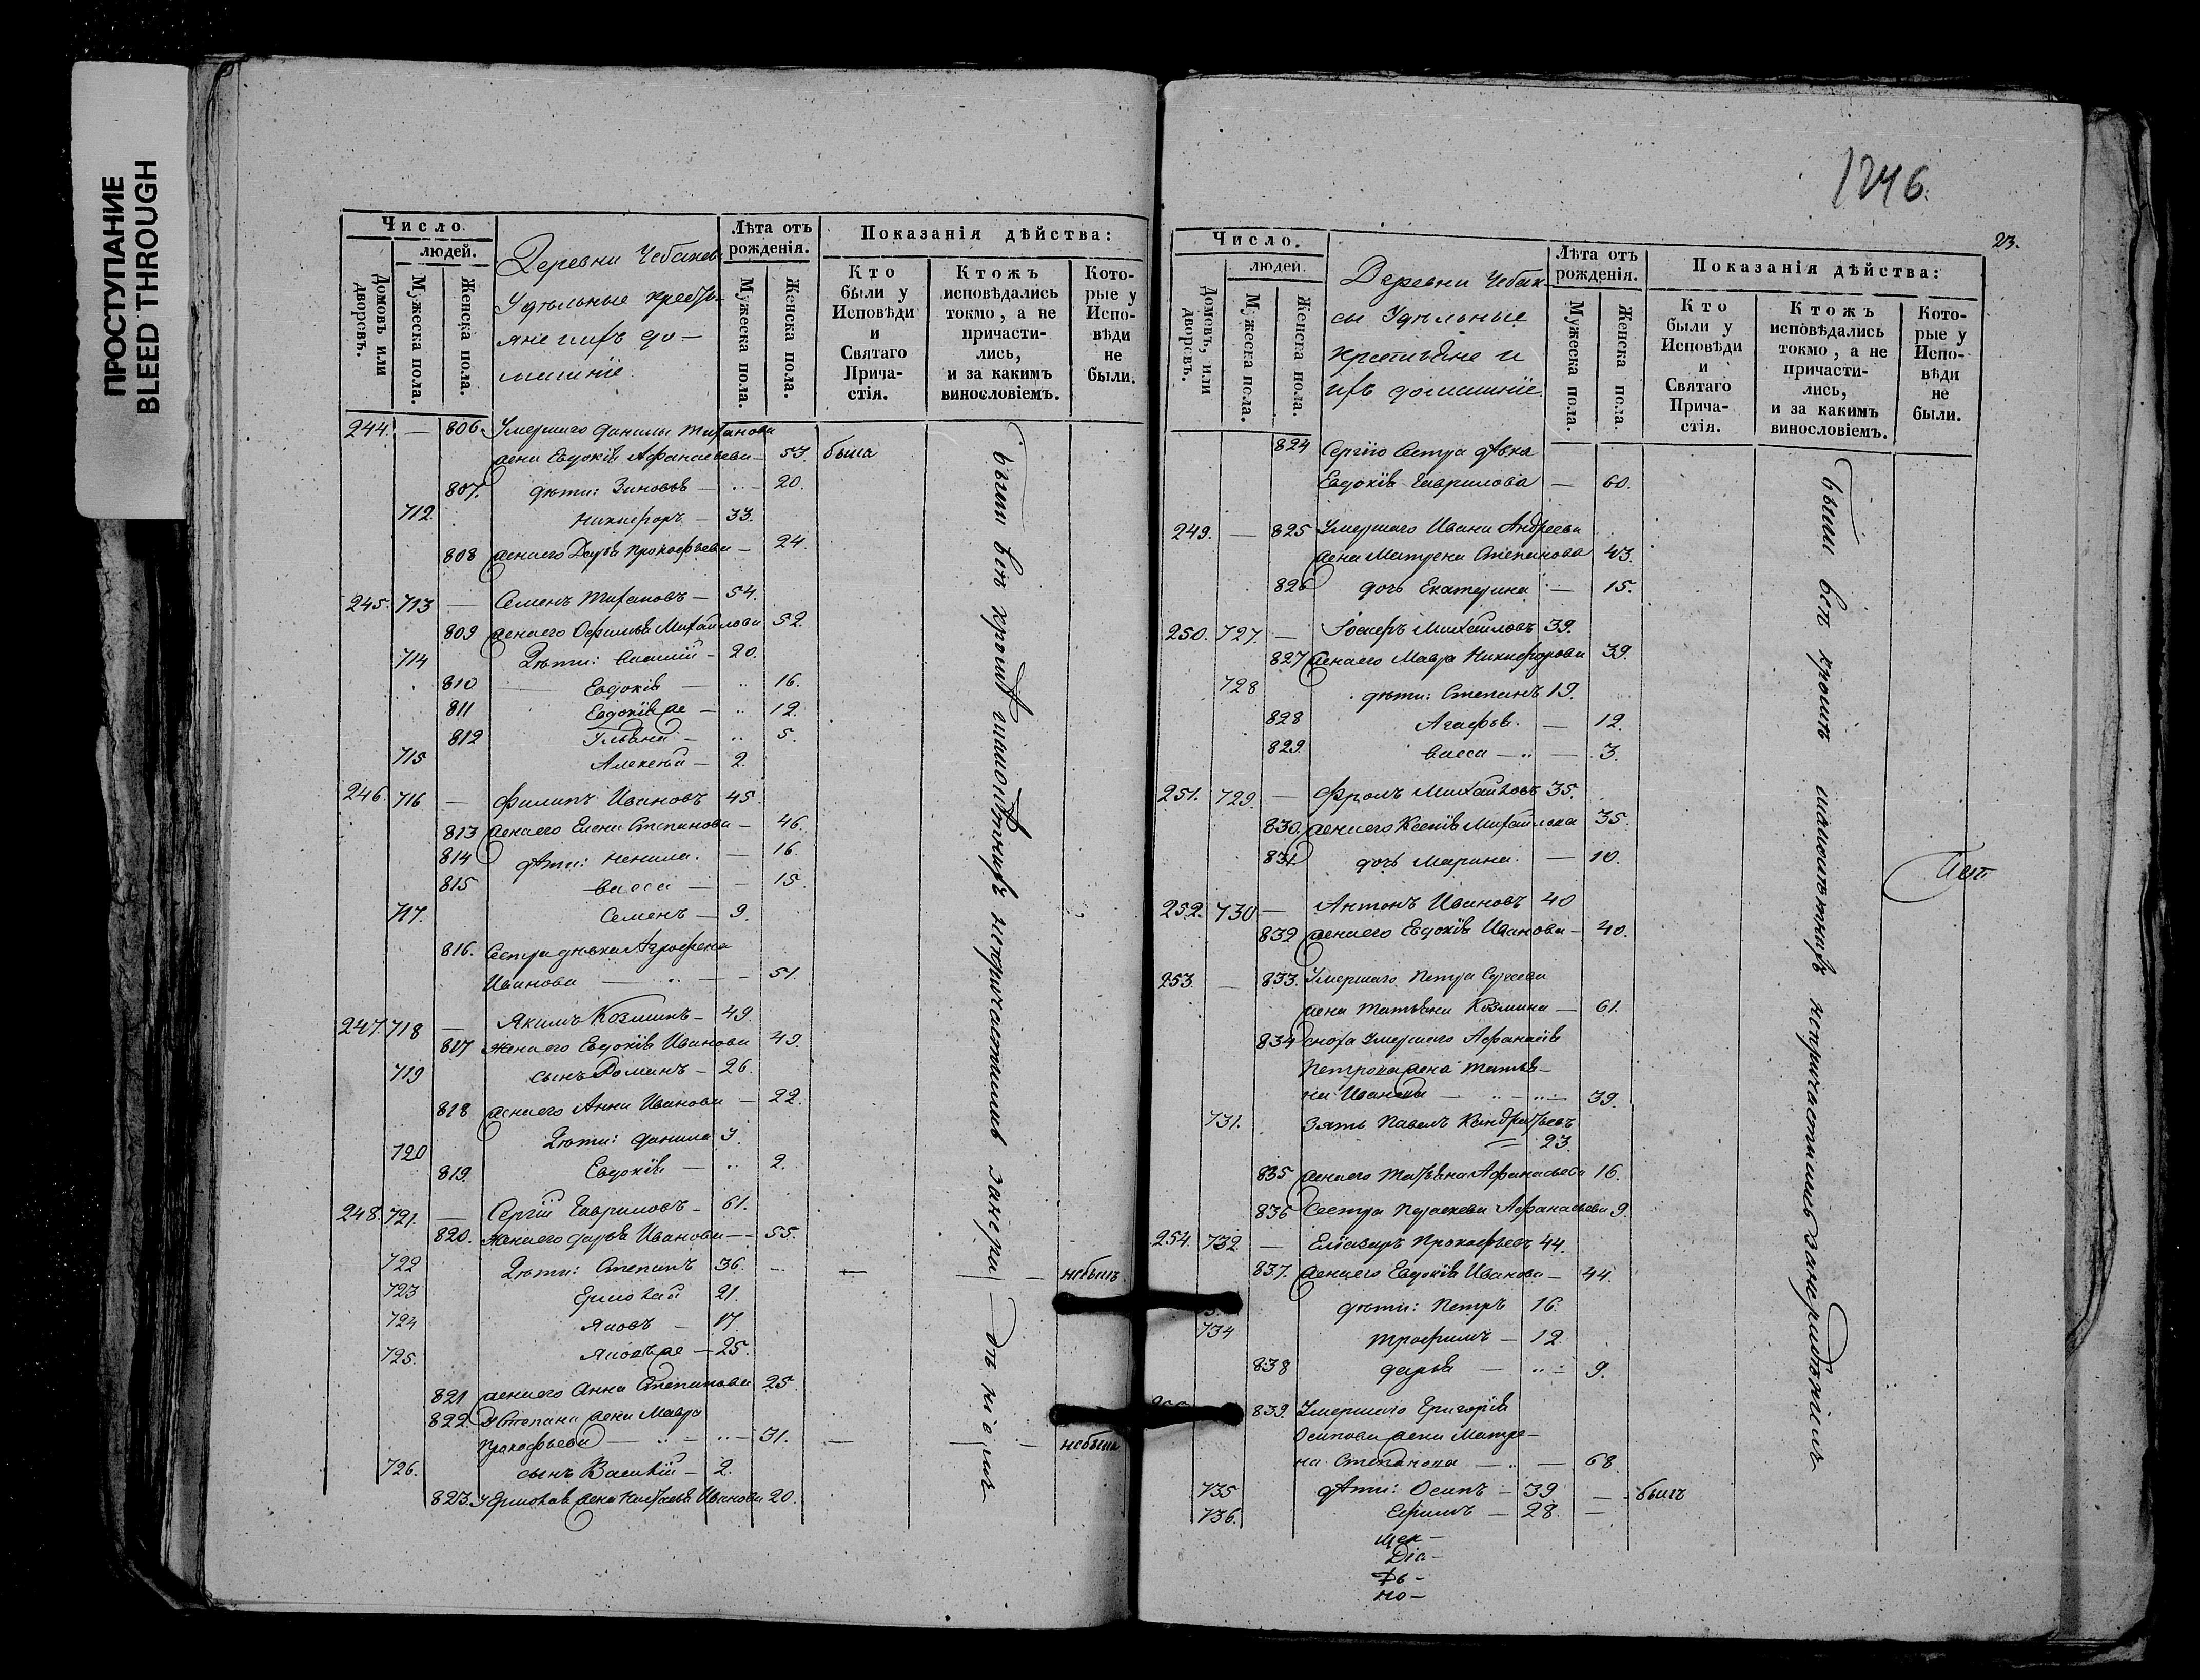 ПРОСТУПАНИЕ
BLEED THROUGH
Число.
людей.
Домовъ или дворовъ.
Мужеска пола.
Женска пола.
Деревни Чебаков
Удѣльные крестья-
яне ихъ до-
машніе.
Лѣта отъ рожденія.
Мужеска пола.
Женска пола.
Показанія дѣйства:
Кто были у Исповѣди и Святаго Прича-стія.
Ктожъ исповѣдались токмо, а не причасти-лись, и за какимъ винословіемъ.
Кото-рые у Испо-вѣди не были.
244. — 806. Умершаго Данилы
жена Евдокія Афанасьева — 53. была
807. дѣти: Зиновья — 20.
712. Никифоръ — 33.
808 жена его Дарья Прокофьева — 24.
245. 713 — Семенъ — 54.
809 жена его Офимья Михайлова 52.
714 Дѣти: Василій — 20.
810 Евдокія — 16.
811 Евдокія же — 12.
812 Ульяна — 5.
715 Алексѣй — 2.
246. 716 — Филипъ Ивановъ 45.
813 жена его Елена Степанова — 46.
814 дѣти: Ненила. — 16.
815 Васса — 15.
717. Семенъ — 9.
816. Сестра дѣвка Агрофена
Иванова — 51.
247. 718 — Якимъ Козминъ — 49.
817 жена его Евдокія Иванова 49.
719 сынъ Романъ — 26.
818 жена его Анна Иванова — 22.
720 Дѣти: Данила 3.
819. Евдокія — 2.
248. 721. — Сергій Гавриловъ — 61.
820. жена его Дарья Иванова — 55.
722 Дѣти: Степанъ 36. — небылъ
723 Ермолай 21.
724 Яковъ — 17.
725. Яковъ же — 25.
821 жена его Анна Степанова 25.
822. У Степана жена Мавра
Прокофьева — 31. — небыла
726. сынъ Василій — 2.
823. У Ермолая жена Наталья Иванова 20.
Были всѣ кромѣ малолѣтнихъ непричастились
1246.
23.
Число.
людей.
Домовъ, или дворовъ.
Мужеска пола.
Женска пола.
Деревни Чебак-
сы Удѣльные
крестьяне и
ихъ домашніе.
Лѣта отъ рожденія.
Мужеска пола.
Женска пола.
Показанія дѣйства:
Кто были у Исповѣди и Святаго Прича-стія.
Ктожъ исповѣдались токмо, а не причасти-лись, и за какимъ винословіемъ.
Кото-рые у Испо-вѣди не были.
824 Сергія Сестра дѣвка
Евдокія Гаврилова — 60.
249. — 825 Умершаго Ивана Андреева
жена Матрена Степанова 43.
826 дочь Екатерина — 15.
250. 727. — Іосифъ Михайловъ 39.
827 жена его Мавра Никифорова 39.
728 дѣти: Степанъ 19.
828 Агафья. — 12.
829. Васса — 3.
251. 729. — Фролъ Михайловъ 35.
830. жена его Ксенія Михайлова 35.
831 дочь Марина. — 10.
252. 730 — Антонъ Ивановъ 40
832 жена его Евдокія Иванова — 40.
253. — 833. Умершаго Петра
жена Татьяна Козмина — 61.
834 сноха Умершаго Афанасія
Петрова жена Татья-
на Иванова — 39.
731. Зять Павелъ Кондратьевъ
23.
835. жена его Татьяна Афанасьева 16.
836 Сестра Парасковья Афанасьева 9.
254. 732 — Еліазаръ Прокофьевъ 44.
837. жена его Евдокія Иванова — 44.
дѣти: Петръ 16.
734 Трофимъ — 12.
838 Дарья — 9.
839. Умершаго Григорія
Осипова жена Матре-
на Степанова — 68.
735 дѣти: Осипъ — 39 — былъ
736. Ефимъ — 28. —
Были всѣ кромѣ малолѣтнихъ непричастились
Діа-
но-